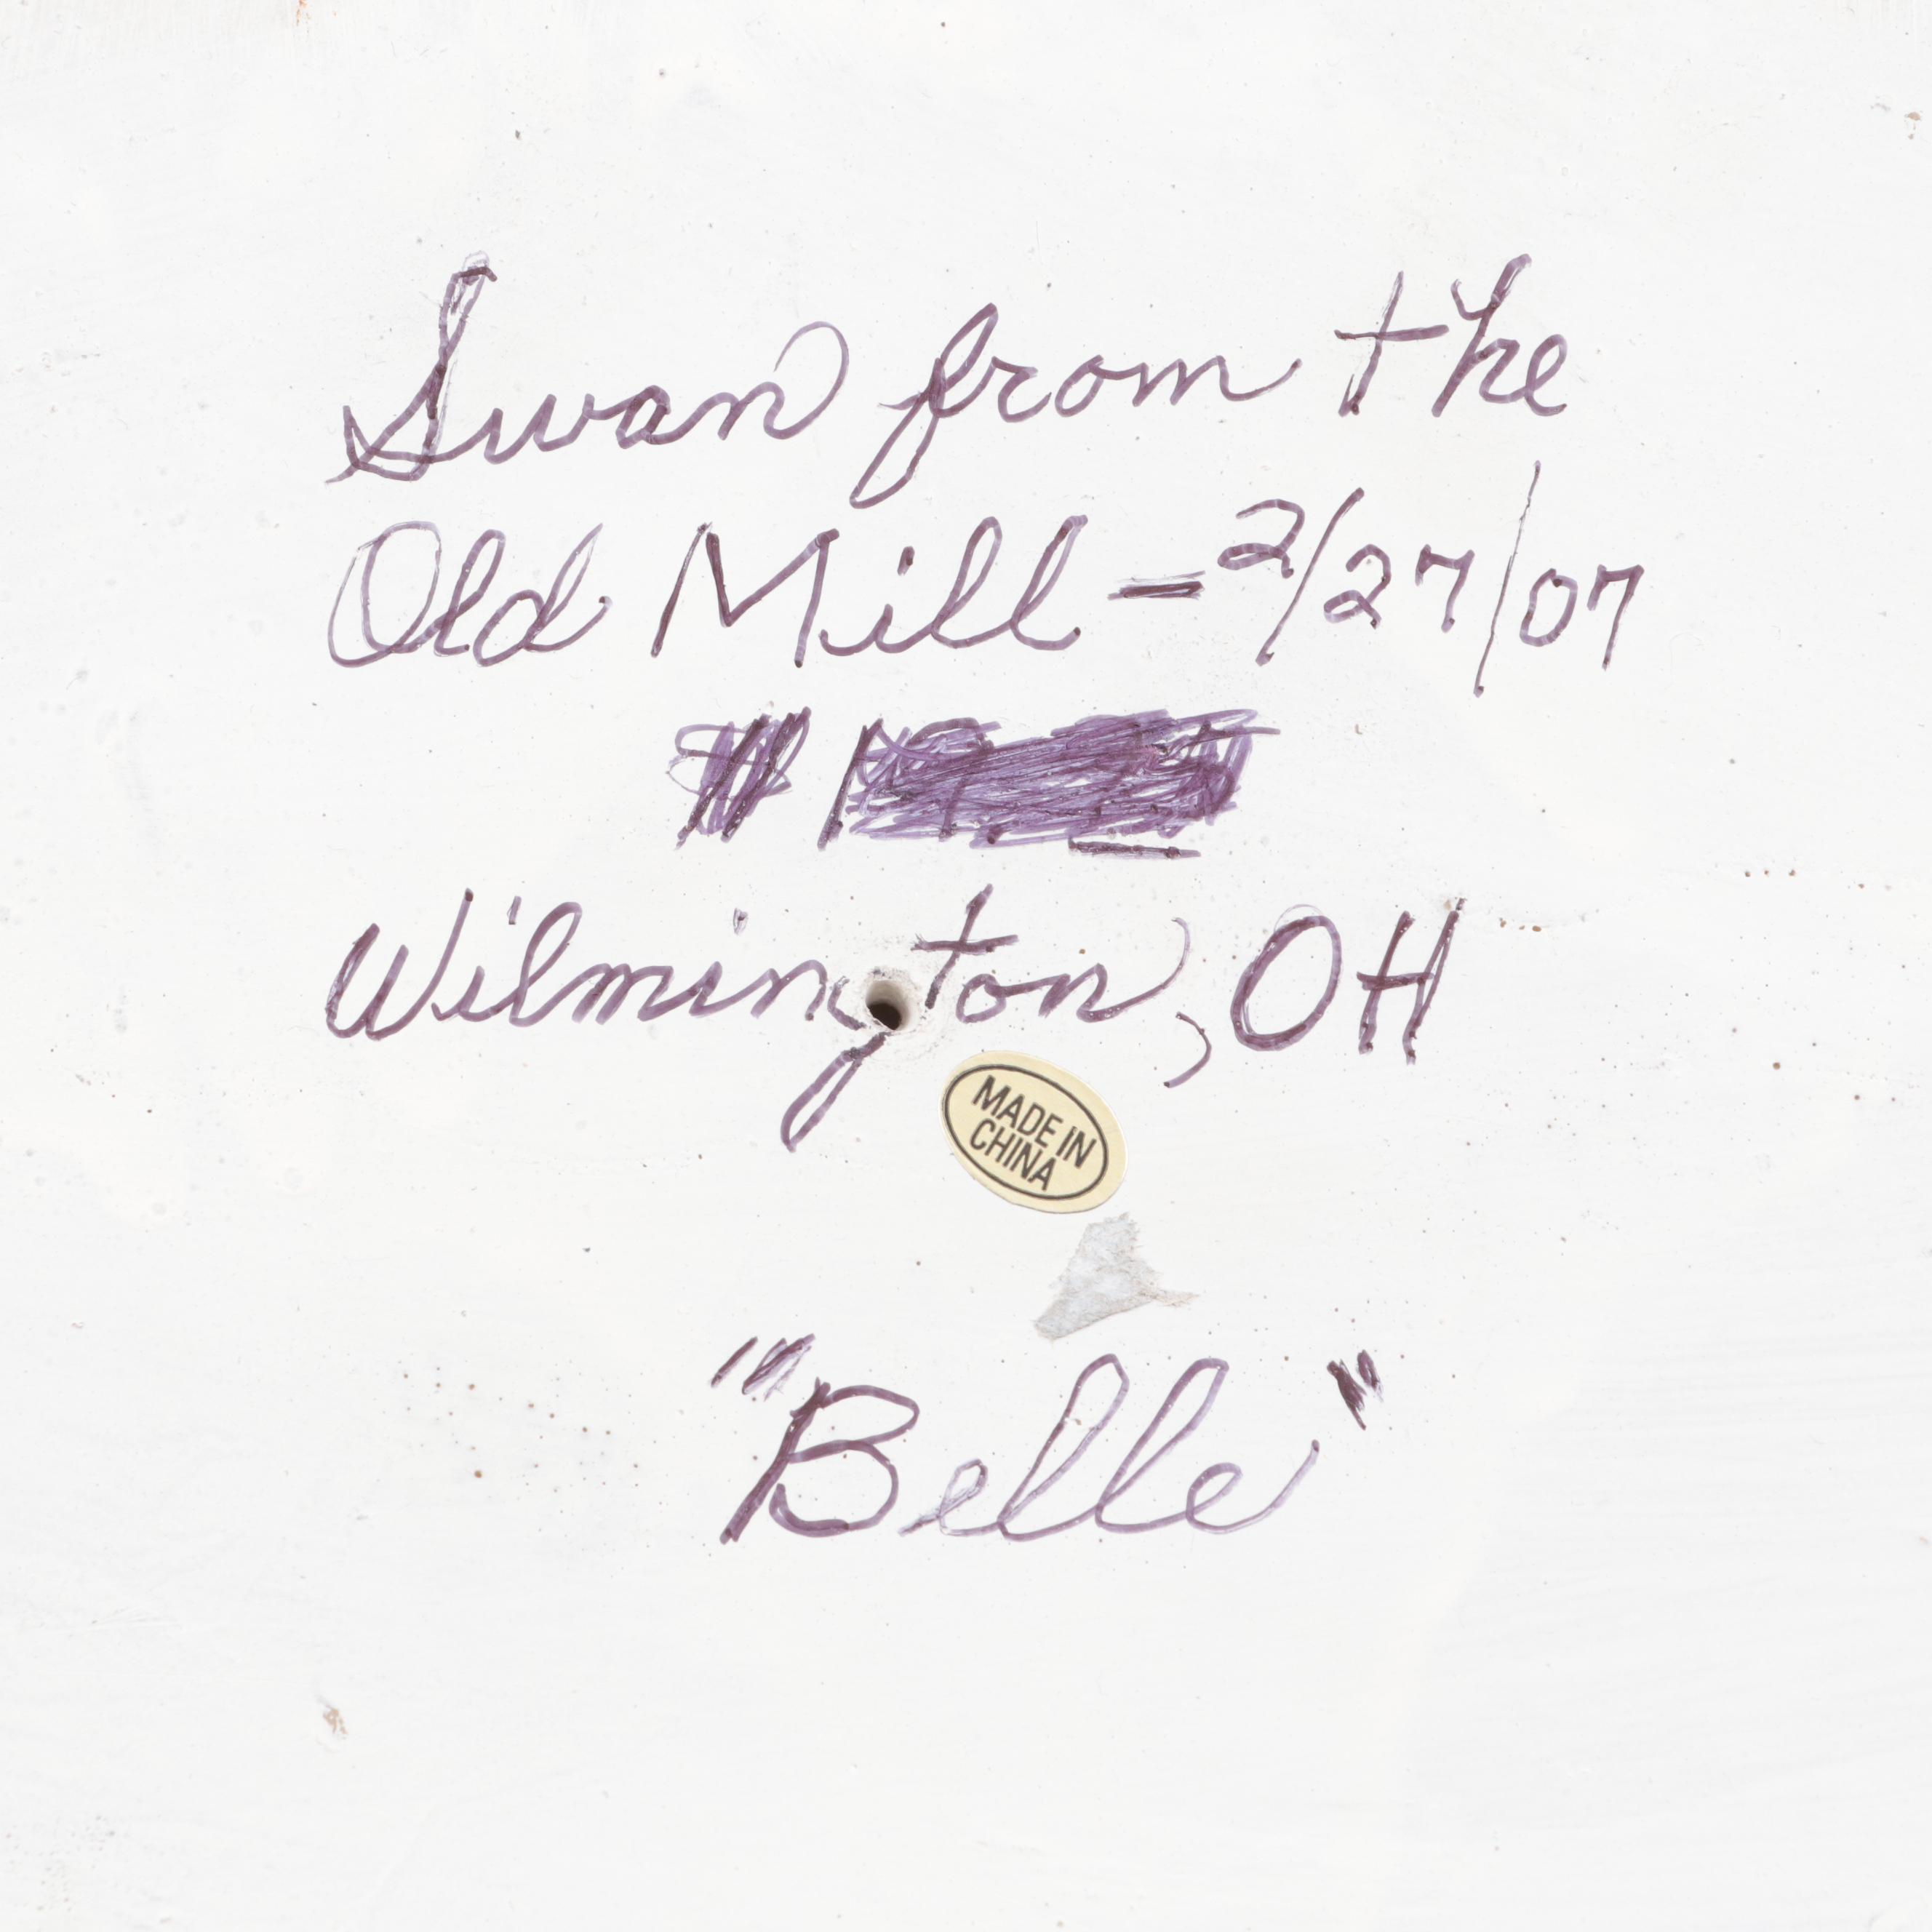 Swan from the
Old Mill - 2/27/07
Wilmington, OH
MADE IN
CHINA
"Belle"